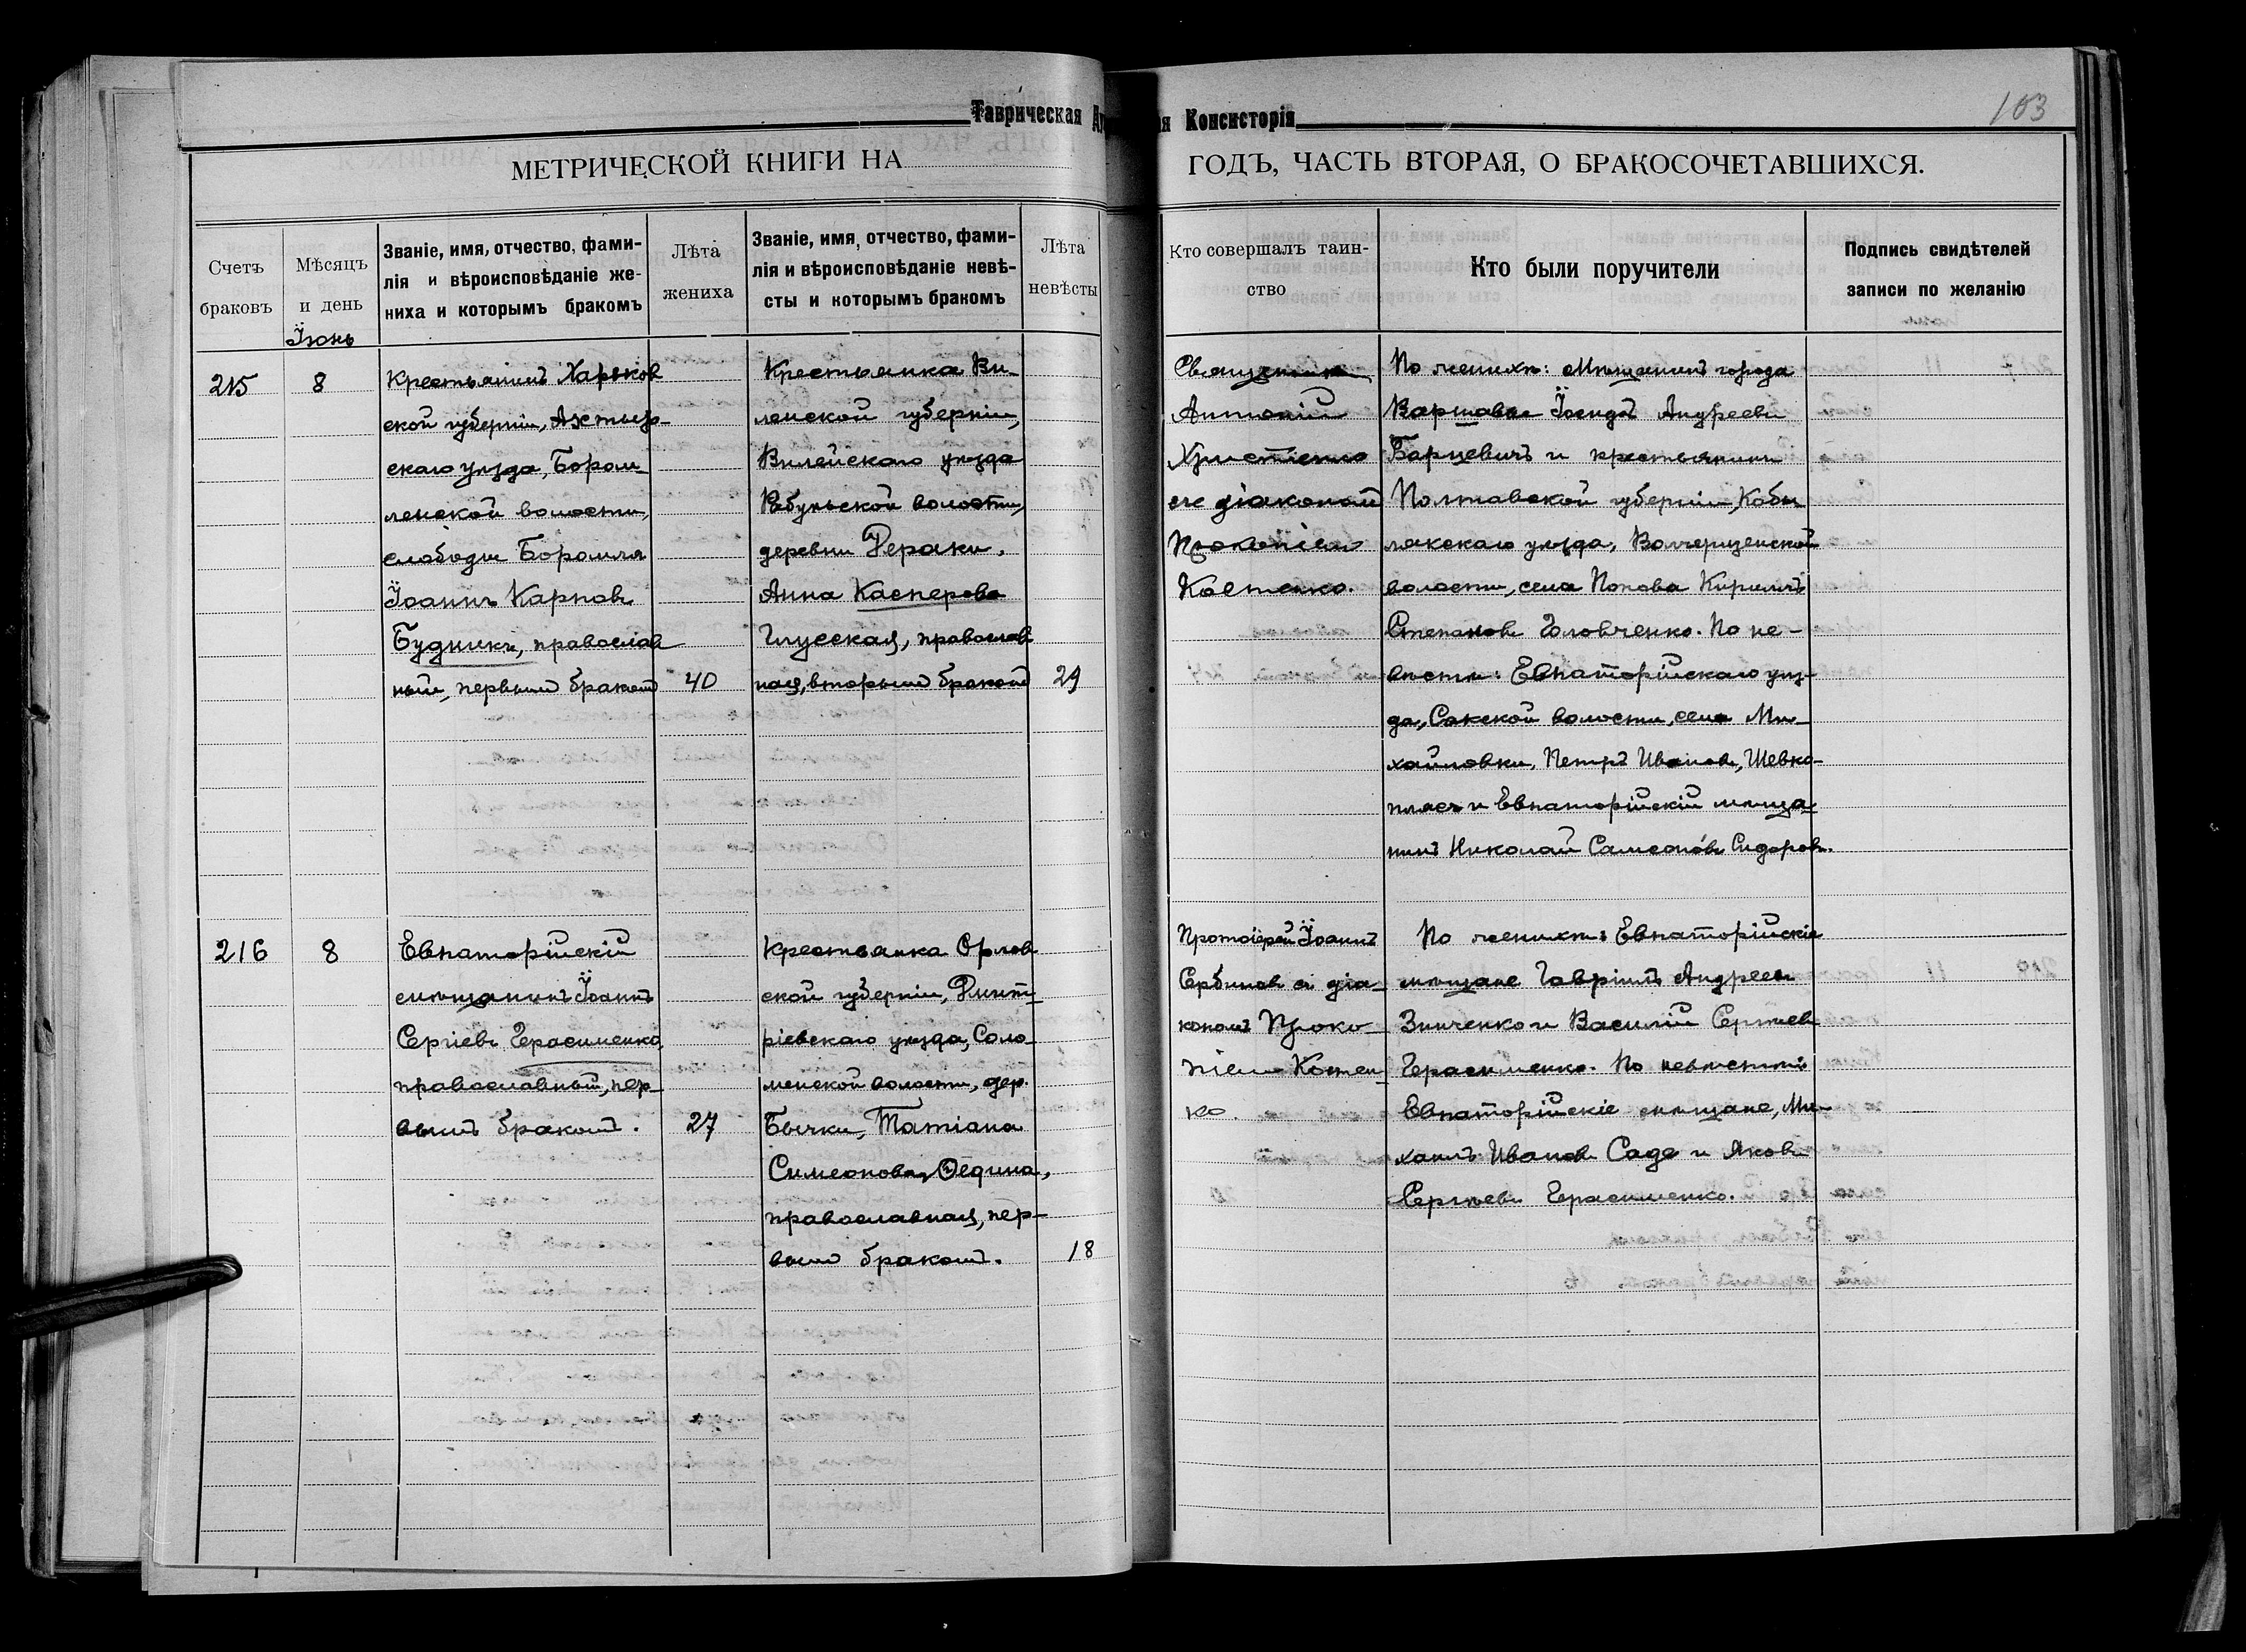 Таврическая
Консисторія
103
МЕТРИЧЕСКОЙ КНИГИ НА
ГОДЪ, ЧАСТЬ ВТОРАЯ, О БРАКОСОЧЕТАВШИХСЯ.
Счетъ
браковъ
Мѣсяцъ
и день
Званіе, имя, отчество, фами-
лія и вѣроисповѣданіе же-
ниха и которымъ бракомъ
Лѣта
жениха
Званіе, имя, отчество, фами-
лія и вѣроисповѣданіе невѣ-
сты и которымъ бракомъ
Лѣта
невѣсты
Кто совершалъ таин-
ство
Кто были поручители
Подпись свидѣтелей
записи по желанію
Їюнь
215
8
Крестьянинъ Харьков
ской губерніи, Ахтыр-
скаго уѣзда, Бором-
ленской волости,
слободы Боромля
Їоаннъ Карповъ
Будникъ, православ
ный, первымъ бракомъ
40
Крестьянка Ви-
ленской губерніи,
Вилейскаго уѣзда
волости,
деревни
Анна Касперова
Глусская, православ
ная, вторымъ бракомъ
29
Священникъ
Антоній
съ діакономъ
Прокопіем
Костенко.
По женихѣ: Мѣщанинъ города
Варшавы Їосифъ Андреевъ
Барцевичъ и крестьянинъ
Полтавской губерніи, Кобы
лякскаго уѣзда,
волости, села Попова Кириллъ
Степановъ Головченко. По не-
вѣстѣ: Евпаторійскаго уѣз-
да, Сакской волости, села Ми-
хайловки, Петръ Ивановъ, Шевко-
плясъ и Евпаторійскій мѣща-
нинъ Николай Самсоновъ Сидоровъ.
216
8
Евпаторійскій
мѣщанинъ Їоаннъ
Сергіевъ Герасименко,
православный, пер-
вымъ бракомъ.
27
Крестьянка Орлов
ской губерніи, Дмит-
ріевскаго уѣзда, Соло-
менской волости, дер.
Бычки, Татіана
Симеонова,
православная, пер-
вым бракомъ.
18
Протоіерей Їоаннъ
Сербиновъ съ діа-
кономъ Проко-
піем Костен-
ко.
По женихѣ: Евпаторійскіе
мѣщане Гавріилъ Андреевъ
Зинченко и Василій Сергѣевъ
Герасименко. По невѣстѣ:
Евпаторійскіе мѣщане, Ми-
хаилъ Ивановъ Саде и Яковъ
Сергѣевъ Герасименко.